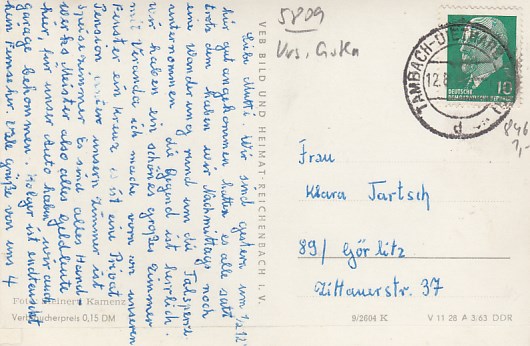 Liebe Mutti. Wir sind gestern um 1/2 12
hir gut angekommen hatten es alle satt
trotz dem haben wir Nachmittags noch
eine Wanderung rund um die Talsperre
unternommen die Gegend ist herrlich.
wir haben ein schönes großes Zimmer
mit Veranda ich mache vorn wo unseren
Fenster ein Kreuz es ist eine Privat
Pension unser Zimmer ist
Speisezimmer Es sind alles Hand-
werks Meister also alles Geldleute
hier, für unser Auto haben wir auch
garage bekommen. Holger ist enttäuscht
kein Fernseher Viele Grüße von uns 4
Foto: Reinert, Kamenz
Verbraucherpreis 0,15 DM
VEB BILD UND HEIMAT · REICHENBACH I. V.
5809
Krs. Gotha
TAMBACH-DIETHARZ
12.8
d
DEUTSCHE
DEMOKRATISCHE
10
Frau
Klara Tartsch
89/ Görlitz
Zittauerstr. 37
9/2604 K
V 11 28 A 3/63 DDR